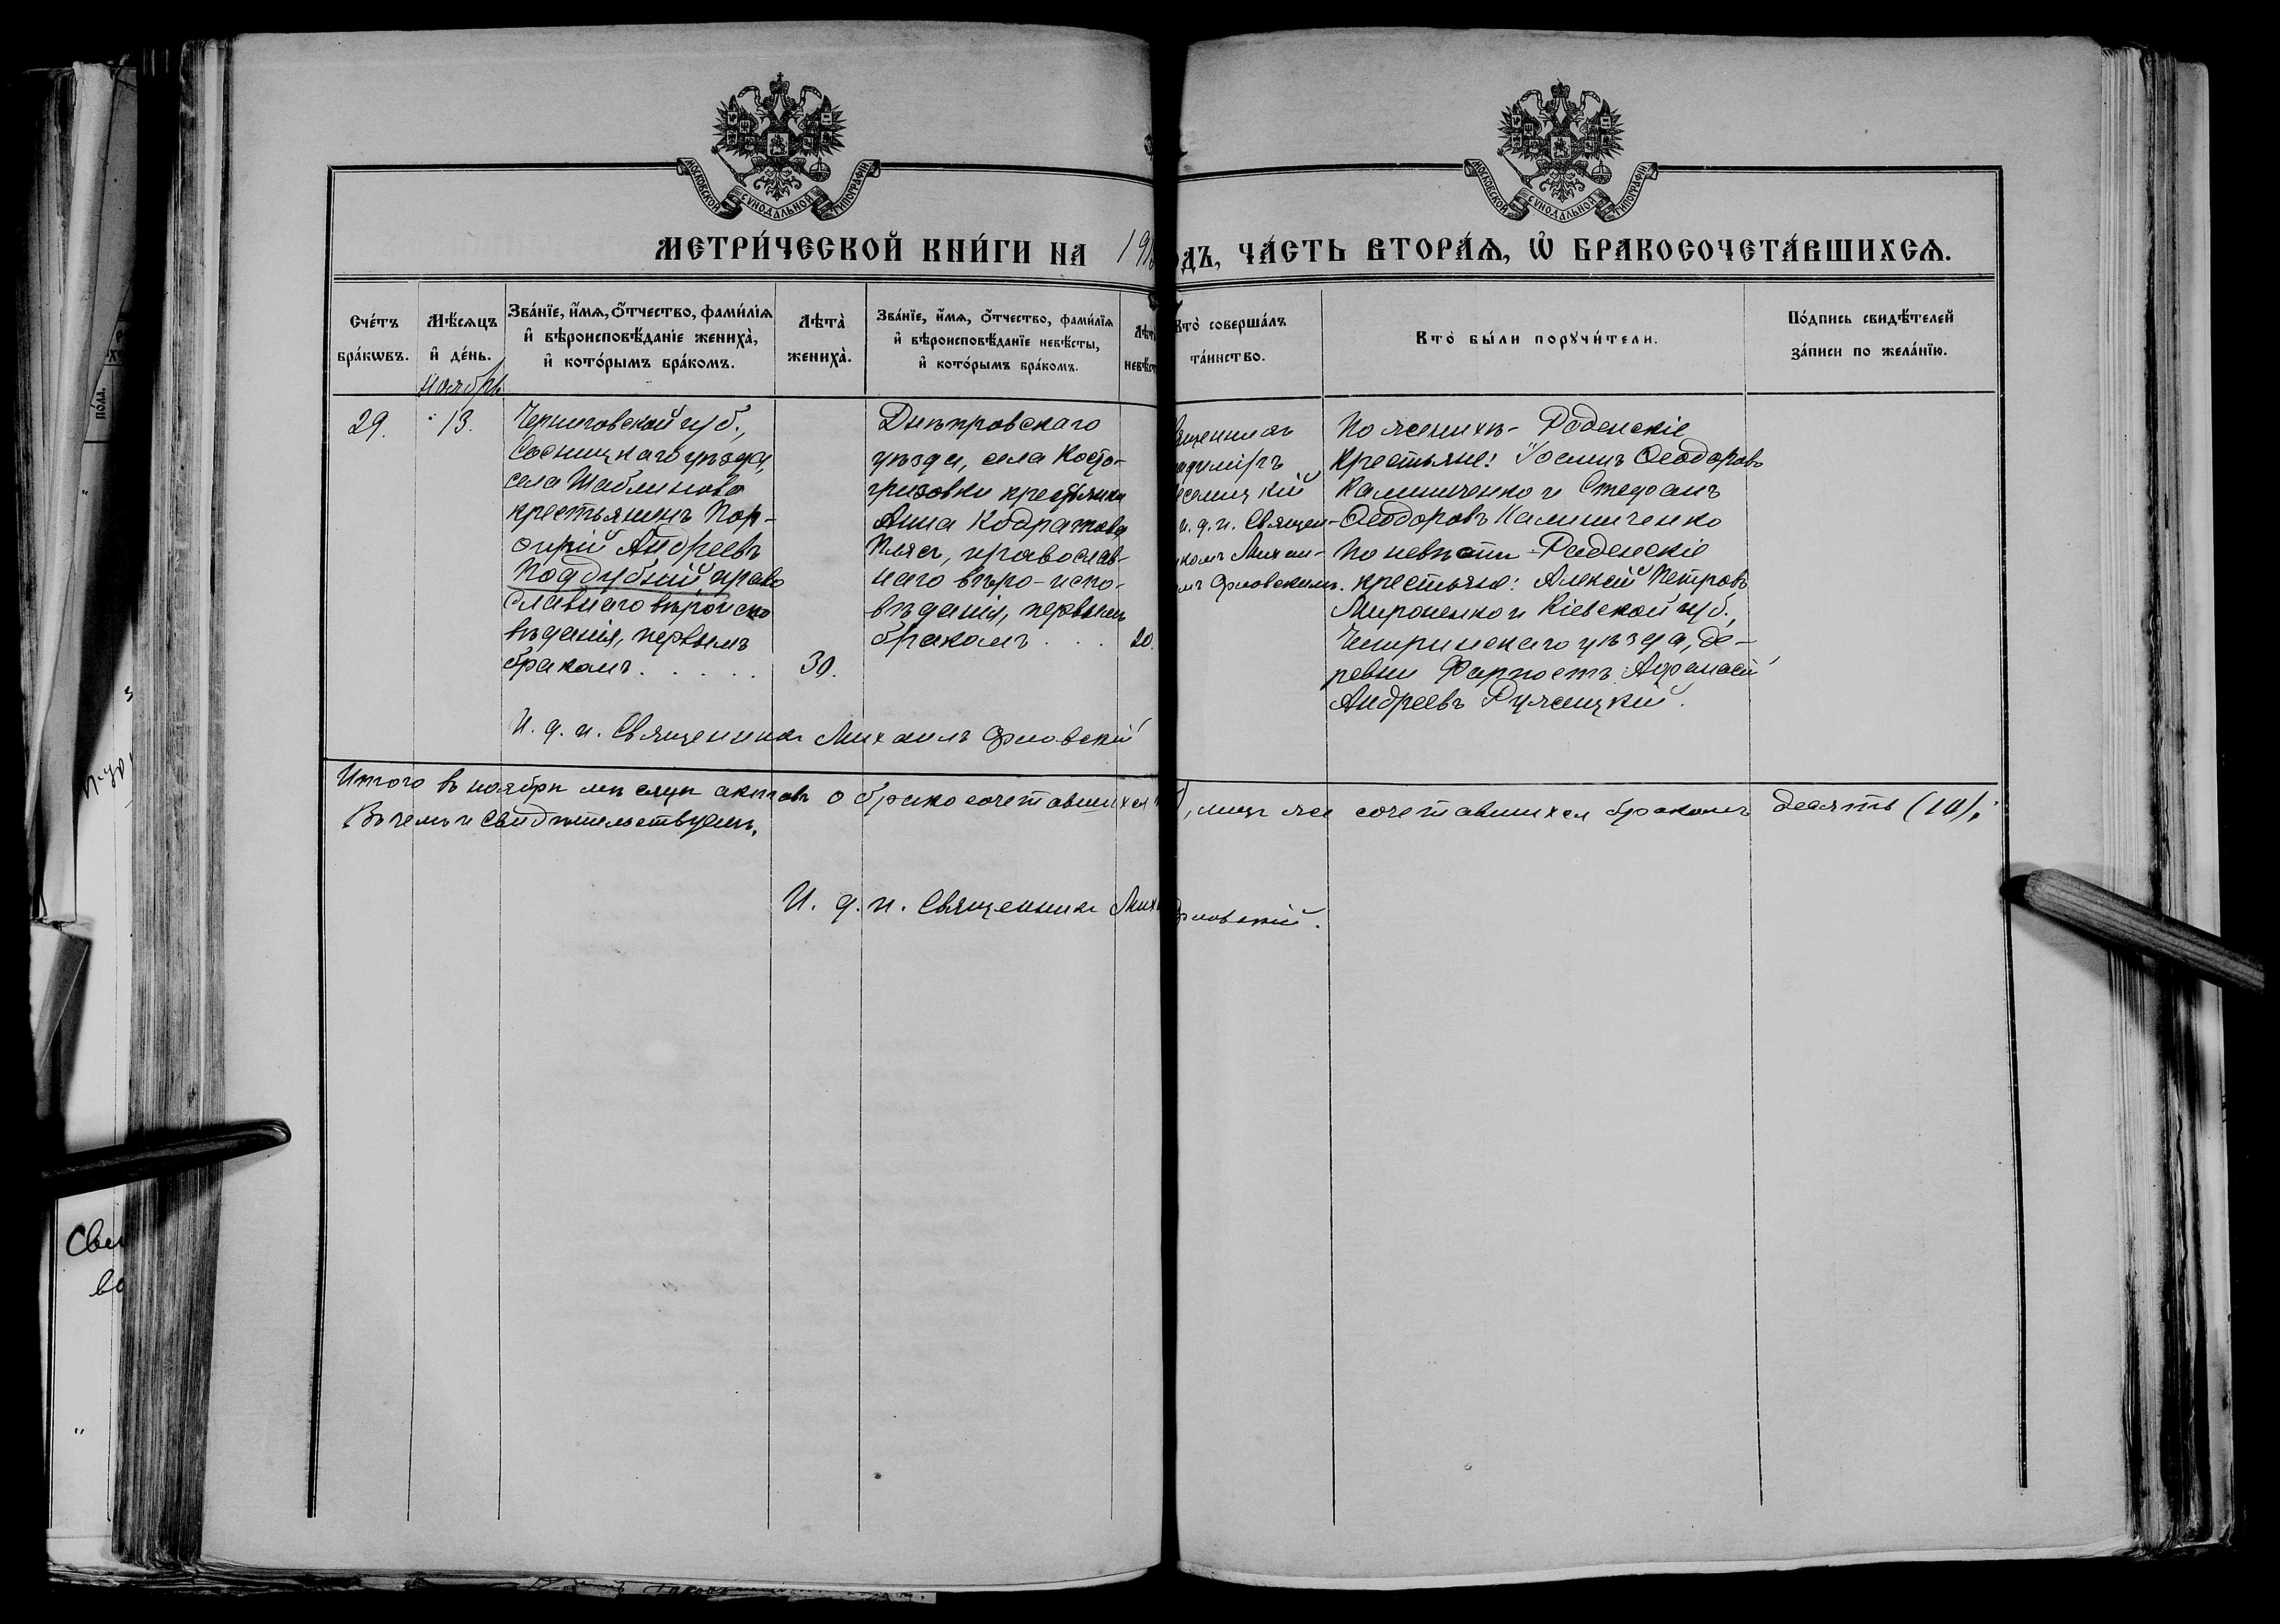 МОСКОВСКОЙ СѴНОДАЛЬНОЙ ТИПОГРАФІИ
МОСКОВСКОЙ СѴНОДАЛЬНОЙ ТИПОГРАФІИ
МЕТРИ́ЧЕСКОЙ КНИ́ГИ НА 191
ОДЪ, ЧА́СТЬ ВТОРА́Ѧ, Ѽ БРАКОСОЧЕТА́ВШИХСѦ.
Сче́тъ
бра́кѡвъ.
Мѣ́сѧцъ
и҆ де́нь.
Зва́нїе, и҆́мѧ, ѻ҆́тчество, фами́лїѧ
и҆ вѣроисповѣ́данїе жениха̀,
и҆ кото́рымъ бра́комъ.
Лѣта̀
жениха̀.
Зва́нїе, и҆́мѧ, ѻ҆́тчество, фами́лїѧ
и҆ вѣроисповѣ́данїе невѣ́сты,
и҆ кото́рымъ бра́комъ.
Лѣт
невѣ́ст
Кто̀ соверша́лъ
та́инство.
Кто̀ бы́ли порꙋчи́тели.
По́дпись свидѣ́телей
за́писи по жела́нїю.
Ноябрь
29.
13.
Черниговской губ.,
Сосницкаго уѣзда,
села Шаблиново
крестьянинъ Пор-
фирій Андреевъ
Поддубный право
славнаго вѣроиспо
вѣданія, первымъ
бракомъ . . . . .
30.
Днѣпровскаго
уѣзда, села Косто-
гризовки крестьянка
Анна Кодратова
Пляс, православ-
наго вѣро-испо-
вѣданія, первымъ
бракомъ . . .
20.
ященникъ
адиміръ
есницкій
и. д. п. Священ-
комъ Михаи-
мъ Орловскимъ.
По женихѣ - Раденскіе
крестьяне: Іосифъ Ѳеодоровъ
Калиниченко и Стефанъ
Ѳеодоровъ Калиниченко
По невѣстѣ - Раденскіе
крестьяне: Алексѣй Петровъ
Мироненко и Кіевской губ.,
Чигиринскаго уѣзда, де-
ревни Форпостъ Афанасій
Андреевъ Ружицкій.
И. д. п. Священникъ Михаилъ Орловскій
Итого въ ноябрѣ мѣсяцѣ актовъ о бракосочетавшихся
, лицъ же сочетавшихся бракомъ десять (10).
Въ чемъ и свидѣтельствуемъ.
И. д. п. Священникъ Мих
Орловскій.